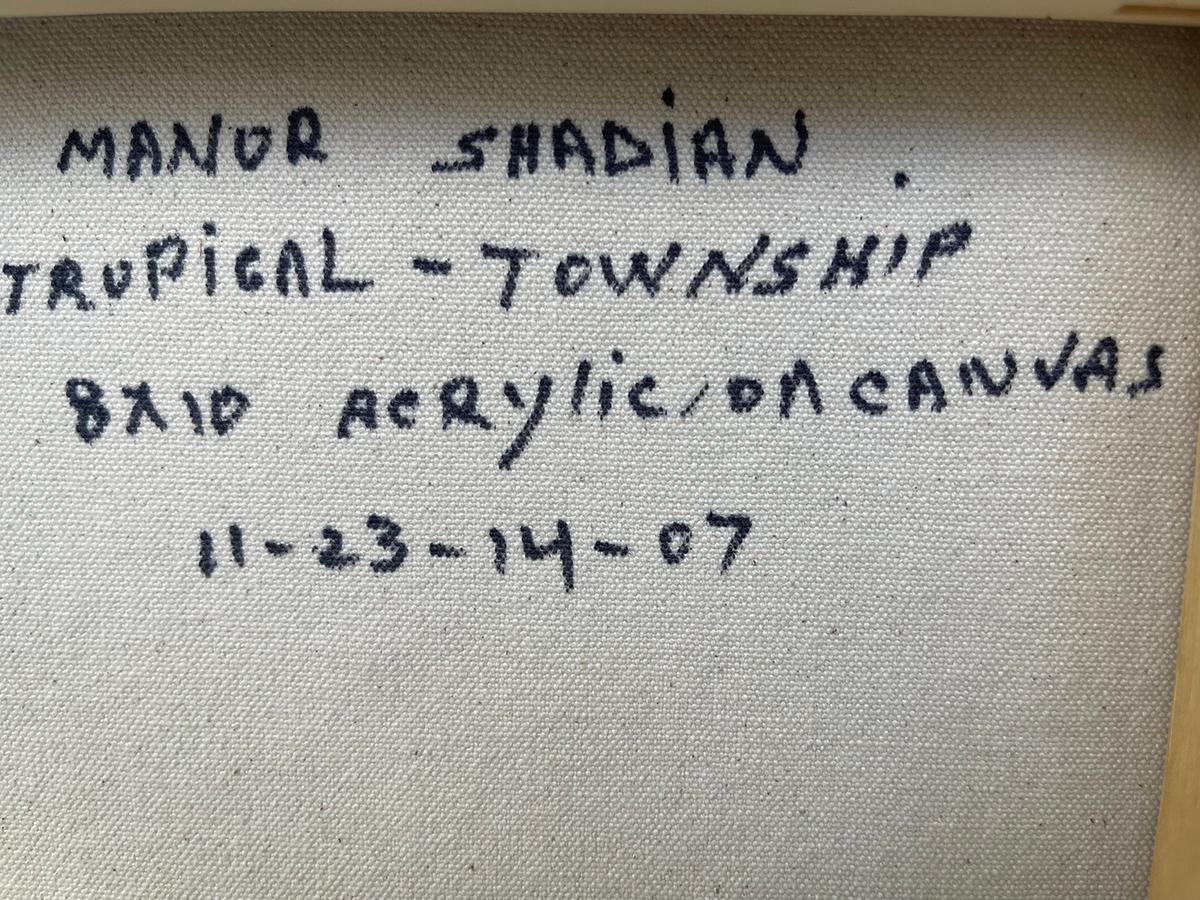 MANOR SHADiAN.
TROPiCAL - TOWNSHIP
8X10 ACRylic/ON CANVAS
11-23-14-07